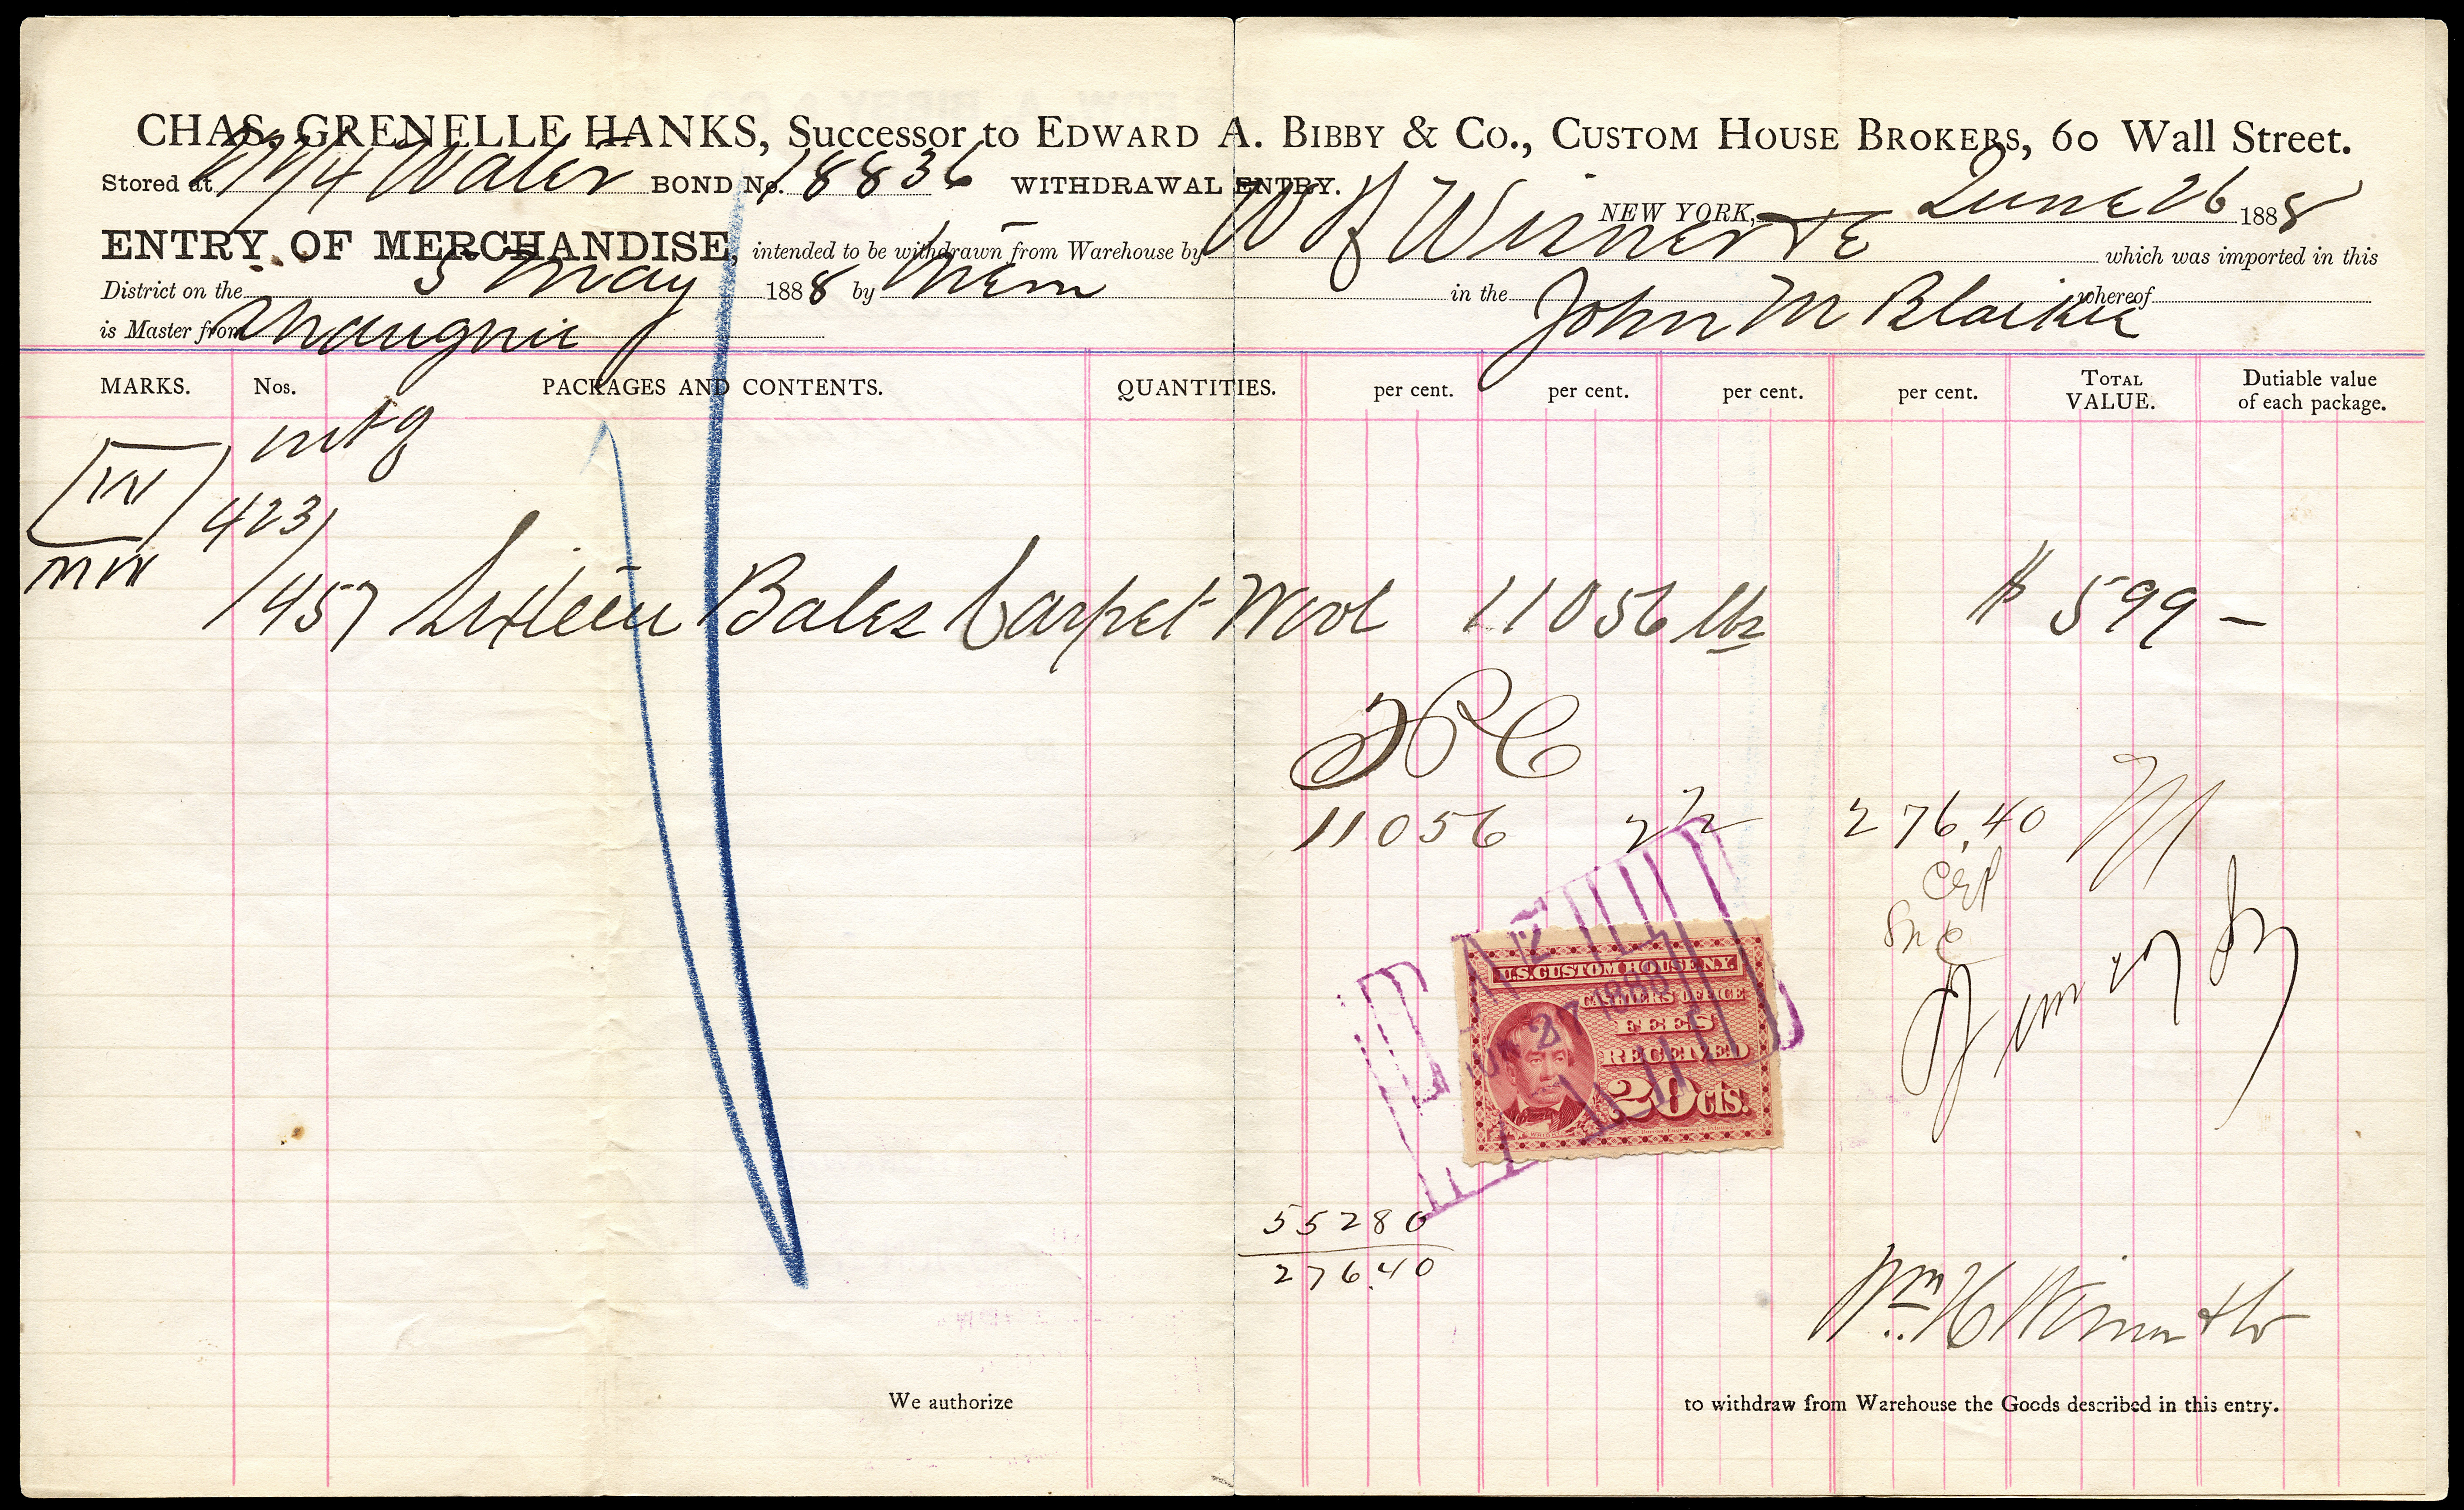 CHAS. GRENELLE HANKS, Successor to EDWARD A. BIBBY & Co., CUSTOM HOUSE BROKERS, 60 Wall Street.
Stored at Water BOND No. 18836 WITHDRAWAL ENTRY.
NEW YORK, June 26 1888
ENTRY OF MERCHANDISE, intended to be withdrawn from Warehouse by W H which was imported in this
District on the 5 May 1888 by them in the John M Blaikie whereof
is Master from
MARKS. Nos. PACKAGES AND CONTENTS. QUANTITIES. per cent. per cent. per cent. per cent. TOTAL VALUE. Dutiable value of each package.
W
423/
MW
/457 Sixteen Bales Carpet Wool 11056 lbs $ 599 -
11056 2 1/2 276.40
U.S. CUSTOM HOUSE N.Y.
CASHIERS OFFICE
FEES
RECEIVED
20 cts.
PAID
JUN 27 1888
55280
276.40
Wm H
We authorize to withdraw from Warehouse the Goods described in this entry.